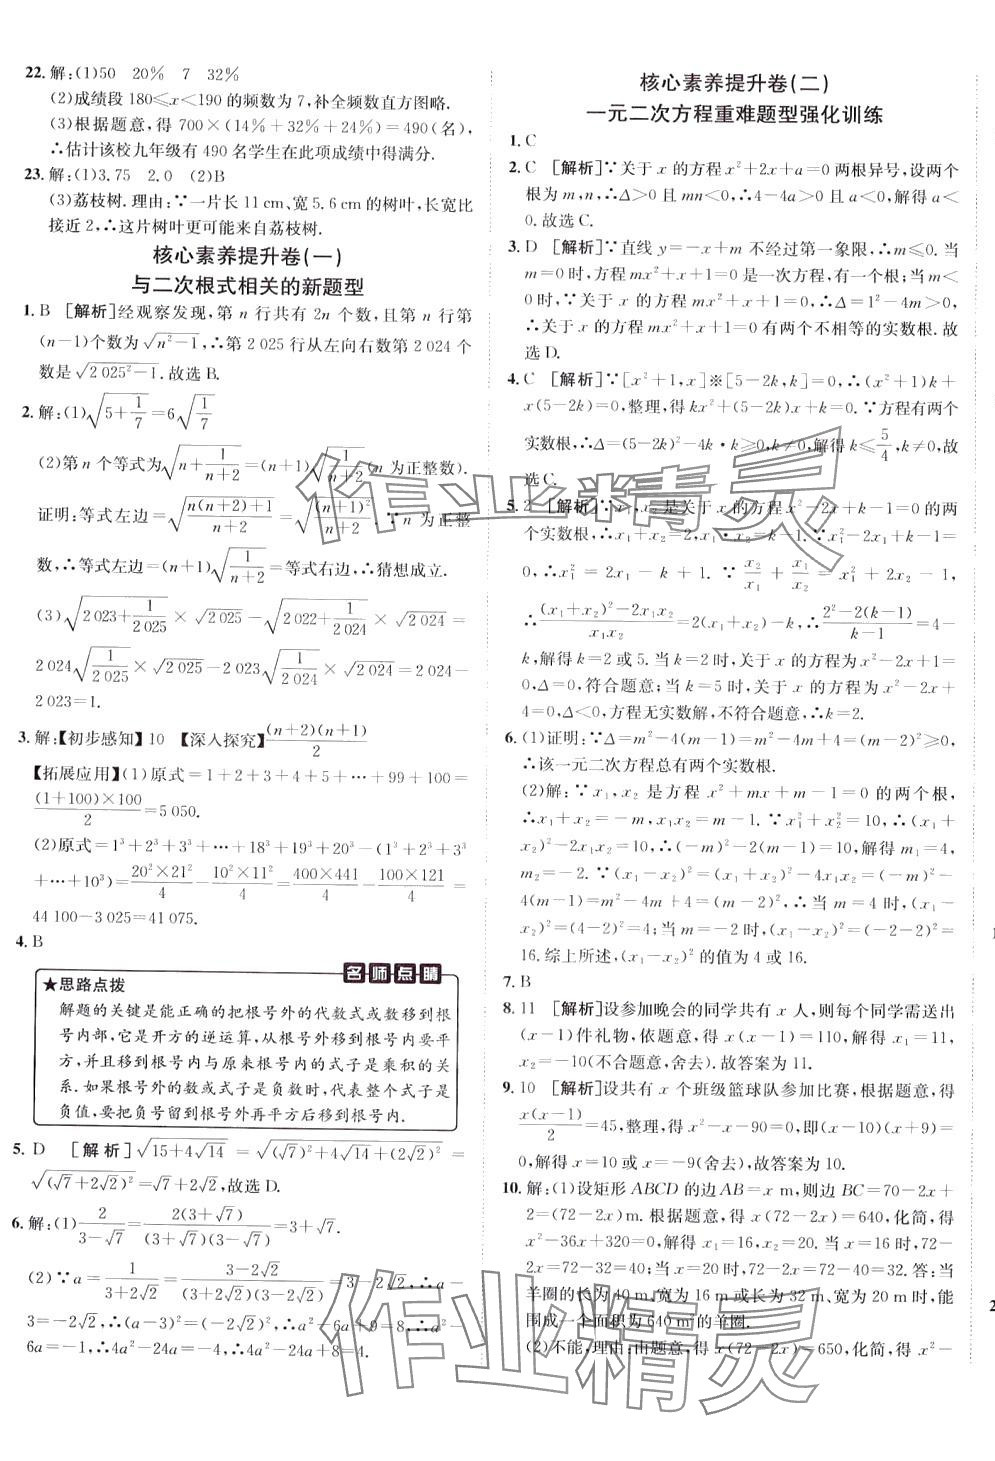 22.解:(1)50 20% 7 32%
(2)成绩段180≤x<190的频数为7,补全频数直方图略.
(3)根据题意,得700×(14%+32%+24%)=490(名),
∴估计该校九年级有490名学生在此项成绩中得满分.
23.解:(1)3.75 2.0 (2)B
(3)荔枝树.理由:∵一片长11 cm、宽5.6 cm的树叶,长宽比
接近2,∴这片树叶更可能来自荔枝树.
核心素养提升卷(一)
与二次根式相关的新题型
1.B [解析]经观察发现,第n行共有2n个数,且第n行第
(n-1)个数为√(n²-1),∴第2 025行从左向右数第2 024个
数是√(2 025²-1).故选B.
2.解:(1)√(5+1/7)=6√(1/7)
(2)第n个等式为√(n+1/(n+2))=(n+1)√(1/(n+2))(n为正整数).
证明:等式左边=√((n(n+2)+1)/(n+2))=√((n+1)²/(n+2)).∵n为正整
数,∴等式左边=(n+1)√(1/(n+2))=等式右边,∴猜想成立.
(3)√(2 023+1/2 025)×√2 025-√(2 022+1/2 024)×√2 024=
2 024√(1/2 025)×√2 025-2 023√(1/2 024)×√2 024=2 024-
2 023=1.
3.解:【初步感知】10 【深入探究】(n+2)(n+1)/2
【拓展应用】(1)原式=1+2+3+4+5+…+99+100=
(1+100)×100/2=5 050.
(2)原式=1³+2³+3³+…+18³+19³+20³-(1³+2³+3³
+…+10³)=20²×21²/4-10²×11²/4=400×441/4-100×121/4=
44 100-3 025=41 075.
4.B
名师点睛
★思路点拨
解题的关键是能正确的把根号外的代数式或数移到根
号内部,它是开方的逆运算,从根号外移到根号内要平
方,并且移到根号内与原来根号内的式子是乘积的关
系.如果根号外的数或式子是负数时,代表整个式子是
负值,要把负号留到根号外再平方后移到根号内.
5.D [解析]√(15+4√14)=√((√7)²+4√14+(2√2)²)=
√((√7+2√2)²)=√7+2√2,故选D.
6.解:(1)2/(3-√7)=2(3+√7)/((3-√7)(3+√7))=3+√7.
(2)∵a=1/(3+2√2)=(3-2√2)/((3+2√2)(3-2√2))=3-2√2,∴a-
3=-2√2,∴(a-3)²=(-2√2)²,∴a²-6a+9=8,∴a²-
6a=-1,∴4a²-24a=-4,∴4a²-24a+8=4.
核心素养提升卷(二)
一元二次方程重难题型强化训练
1.C
2.C [解析]∵关于x的方程x²+2x+a=0两根异号,设两个
根为m,n,∴Δ>0且mn<0,∴4-4a>0且a<0,解得a<
0.故选C.
3.D [解析]∵直线y=-x+m不经过第一象限,∴m≤0.当
m=0时,方程mx²+x+1=0是一次方程,有一个根;当m<
0时,∵关于x的方程mx²+x+1=0,∴Δ=1²-4m>0,
∴关于x的方程mx²+x+1=0有两个不相等的实数根.故
选D.
4.C [解析]∵[x²+1,x]※[5-2k,k]=0,∴(x²+1)k+
x(5-2k)=0,整理,得kx²+(5-2k)x+k=0.∵方程有两个
实数根,∴Δ=(5-2k)²-4k·k≥0,k≠0,解得k≤5/4,k≠0,故
选C.
5.2 [解析]∵x₁,x₂是关于x的方程x²-2x+k-1=0的两
个实数根,∴x₁+x₂=2,x₁·x₂=k-1.∵x₁²-2x₁+k-1=
0,∴x₁²=2x₁-k+1.∵x₂/x₁+x₁/x₂=x₁²+2x₂-1,
∴((x₁+x₂)²-2x₁x₂)/(x₁x₂)=2(x₁+x₂)-k,∴(2²-2(k-1))/(k-1)=4-
k,解得k=2或5.当k=2时,关于x的方程为x²-2x+1=
0,Δ=0,符合题意;当k=5时,关于x的方程为x²-2x+
4=0,Δ<0,方程无实数解,不符合题意,∴k=2.
6.(1)证明:∵Δ=m²-4(m-1)=m²-4m+4=(m-2)²≥0,
∴该一元二次方程总有两个实数根.
(2)解:∵x₁,x₂是方程x²+mx+m-1=0的两个根,
∴x₁+x₂=-m,x₁x₂=m-1.∵x₁²+x₂²=10,∴(x₁+
x₂)²-2x₁x₂=10,∴(-m)²-2(m-1)=10,解得m₁=4,
m₂=-2.∵(x₁-x₂)²=(x₁+x₂)²-4x₁x₂=(-m)²-
4(m-1)=m²-4m+4=(m-2)²,∴当m=4时,(x₁-
x₂)²=(4-2)²=4;当m=-2时,(x₁-x₂)²=(-2-2)²=
16.综上所述,(x₁-x₂)²的值为4或16.
7.B
8.11 [解析]设参加晚会的同学共有x人,则每个同学需送出
(x-1)件礼物,依题意,得x(x-1)=110,解得x₁=11,
x₂=-10(不合题意,舍去).故答案为11.
9.10 [解析]设共有x个班级篮球队参加比赛,根据题意,得
x(x-1)/2=45,整理,得x²-x-90=0,即(x-10)(x+9)=
0,解得x=10或x=-9(舍去),故答案为10.
10.解:(1)设矩形ABCD的边AB=x m,则边BC=70-2x+
2=(72-2x)m.根据题意,得x(72-2x)=640,化简,得
x²-36x+320=0,解得x₁=16,x₂=20.当x=16时,72-
2x=72-32=40;当x=20时,72-2x=72-40=32.答:当
羊圈的长为40 m、宽为16 m或长为32 m、宽为20 m时,能
围成一个面积为640 m²的羊圈.
(2)不能,理由:由题意,得x(72-2x)=650,化简,得x²-
作业精灵
作业精灵